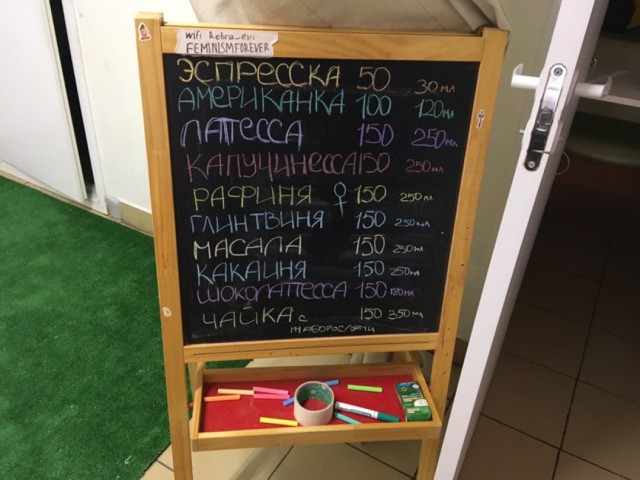 wifi kebra_evi
FEMINISMFOREVER
ЭСПРЕССКА 50 30 мл
АМЕРИКАНКА 100 120 мл
ЛАТЕССА 150 250 мл
КАПУЧИНЕССА 150 250 мл
РАФИНЯ ♀ 150 250 мл
ГЛИНТВИНЯ 150 250 мл
МАСАЛА 150 250 мл
КАКАИНЯ 150 250 мл
ШОКОЛАТТЕССА 150 180 мл
ЧАЙКА с 150 350 мл